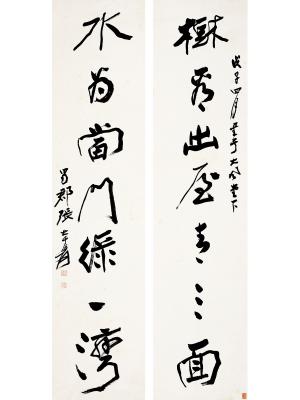 樹出屋青三面
戊子四月書于大風堂下
水為當門綠一灣
蜀郡張大千爰